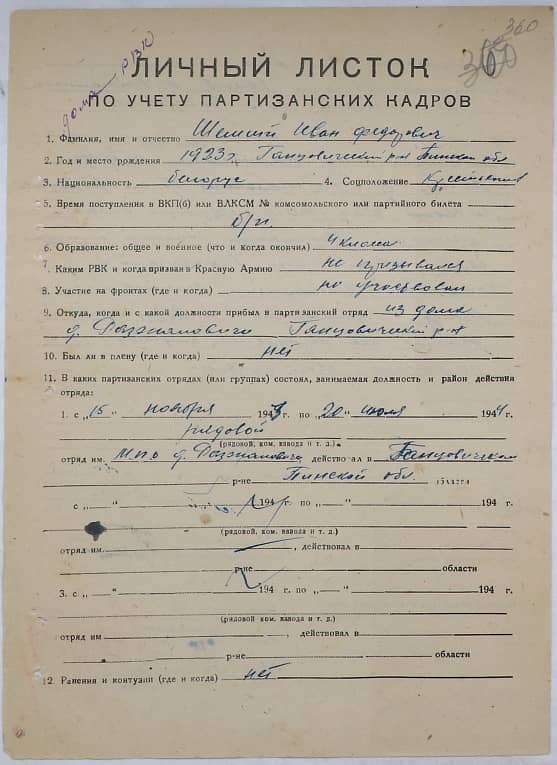 360
дома РВК 360
ЛИЧНЫЙ ЛИСТОК
ПО УЧЕТУ ПАРТИЗАНСКИХ КАДРОВ
1. Фамилия, имя и отчество Иван Федорович
2. Год и место рождения 1923 г. Ганцовический р-н Пинской обл
3. Национальность белорус 4. Соцположение
5. Время поступления в ВКП(б) или ВЛКСМ № комсомольского или партийного билета
б/п.
6. Образование: общее и военное (что и когда окончил) 4 класса
7. Каким РВК и когда призван в Красную Армию не призывался
8. Участие на фронтах (где и когда) не участвовал
9. Откуда, когда и с какой должности прибыл в партизанский отряд из дома
д. Ганцовический р-н
10. Был ли в плену (где и когда) нет
11. В каких партизанских отрядах (или группах) состоял, занимаемая должность и район действия
отряда:
1. с „15" ноября 1943 г. по „20" июля 1944
рядовой
(рядовой, ком. взвода и т. д.)
отряд им. МПО д. действовал в Ганцовичском
р-не Пинской обл. области
с „ — " 194 г. по „ — " 194
(рядовой, ком. взвода и т. д.)
отряд им. , действовал в
р-не области
3. с „ — " 194 г. по „ — " 194 г.
(рядовой, ком. взвода и т. д.)
отряд им , действовал в
р-не области
12. Ранения и контузии (где и когда) нет